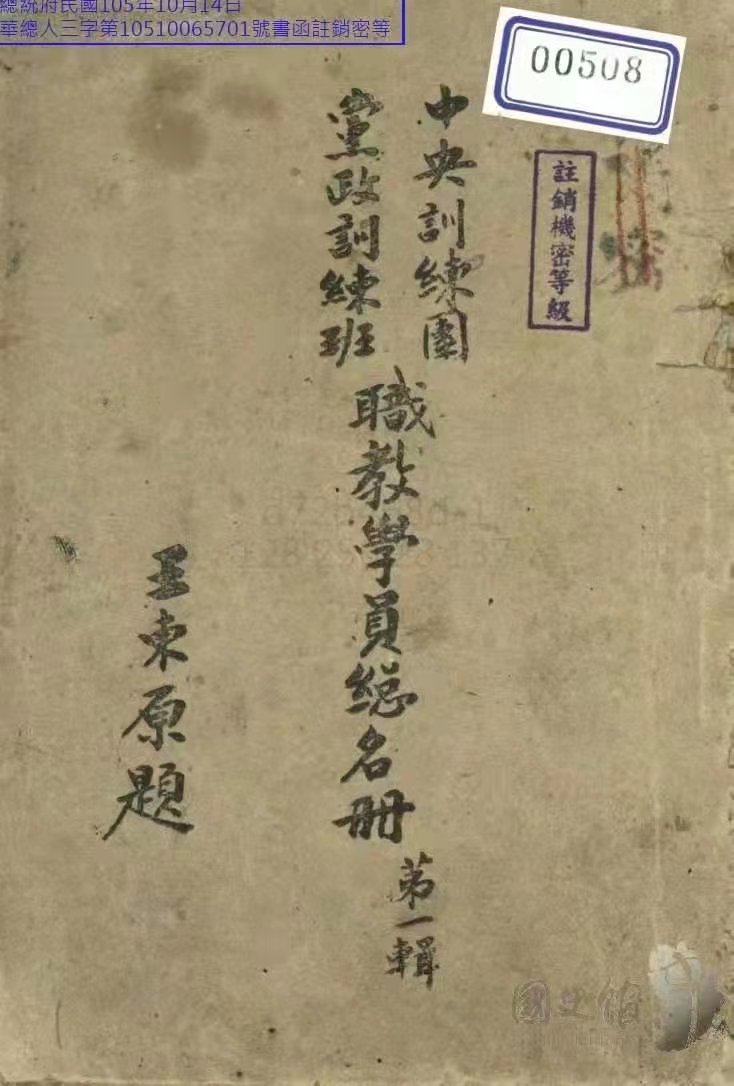 總統府民國105年10月14日
華總人三字第10510065701號書函註銷密等
00508
註銷機密等級
中央訓練團
黨政訓練班
職教學員總名冊
第一輯
王東原題
國史館